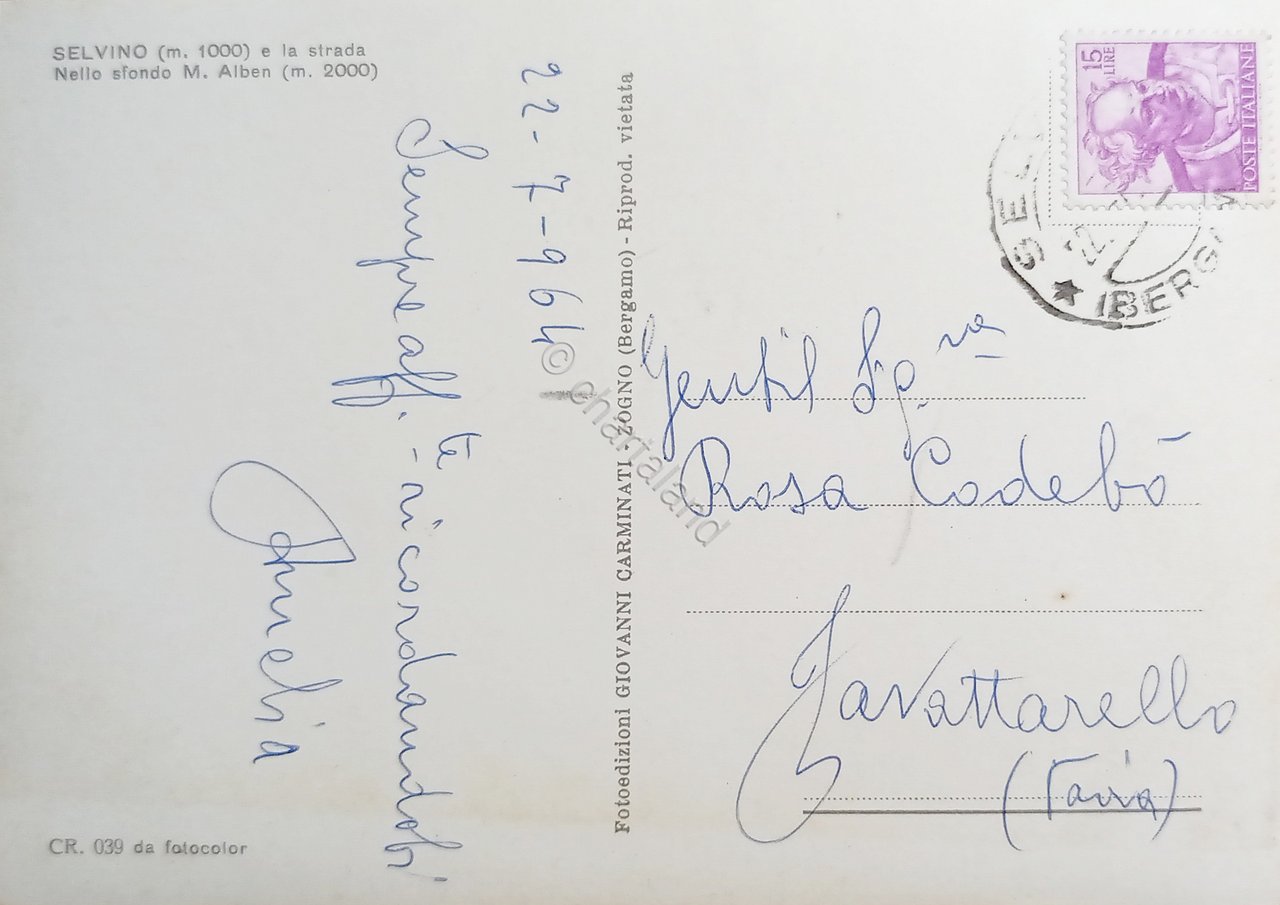 SELVINO (m. 1000) e la strada
Nello sfondo M. Alben (m. 2000)
22-7-964
Sempre aff.te - ricordandoti
Amelia
CR. 039 da fotocolor
Fotoedizioni GIOVANNI CARMINATI - ZOGNO (Bergamo) - Riprod. vietata
15 LIRE
POSTE ITALIANE
SEL
22.
★ (BERGAM
Gentil Sig.ra
Rosa Codebò
Zavattarello
(Pavia)
© chartaland